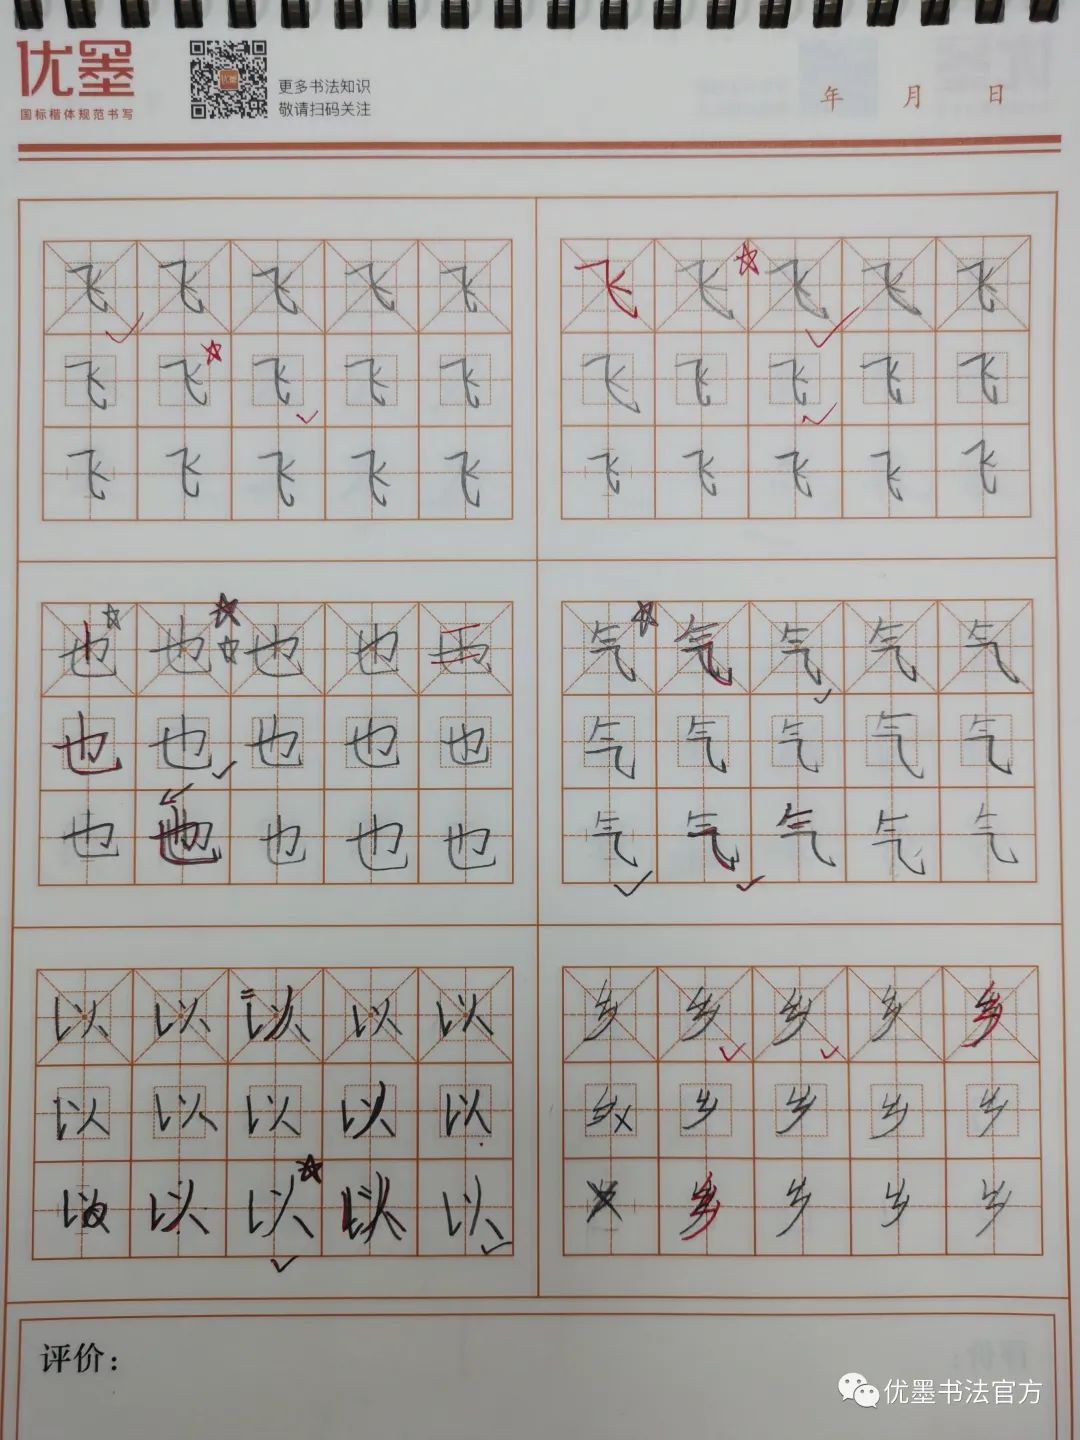 优墨
国标楷体规范书写
优墨
更多书法知识
敬请扫码关注
年 月 日
飞 飞 飞 飞 飞
飞 飞 飞 飞 飞
飞 飞 飞 飞 飞
飞 飞 飞 飞 飞
飞 飞 飞 飞 飞
飞 飞 飞 飞 飞
也 也 也 也
也 也 也 也 也
也 也 也 也 也
气 气 气 气 气
气 气 气 气 气
气 气 气 气 气
以 以 以 以 以
以 以 以 以 以
以 以 以 以
乡 乡 乡 乡 乡
乡 乡 乡 乡
乡 乡 乡 乡
评价：
优墨书法官方